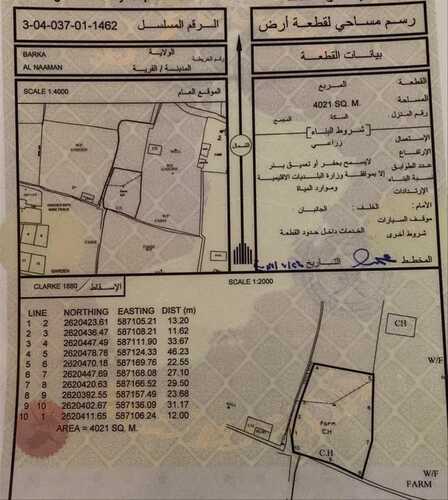 رسم مساحي لقطعة أرض
الرقم المسلسل
3-04-037-01-1462
بيانات القطعة
BARKA
الولاية
AL NAAMAN
المدينة / القرية
SCALE 1:4000
الموقع العام
القطعة
المربع
المساحة
4021 SQ. M.
رقم المنزل
السكة
المجمع
شروط البناء
الاستعمال
زراعي
الارتفاع
لايسمح بحفر أو تعميق بئر
عدد الطوابق
إلا بموافقة وزارة البلديات الاقليمية
نسبة البناء
وموارد المياة
الارتدادات
الأمام:
الخلف:
الجانبان
موقف السيارات
شروط أخرى
الخدمات داخل حدود القطعة
المخطط
التاريخ
شمال
CLARKE 1880
الإسقاط
SCALE 1:2000
LINE NORTHING EASTING DIST (m)
1 2 2620423.61 587105.21 13.20
2 3 2620436.47 587108.21 11.62
3 4 2620447.49 587111.90 33.67
4 5 2620478.78 587124.33 46.23
5 6 2620470.18 587169.76 22.55
6 7 2620447.69 587168.08 27.10
7 8 2620420.63 587166.52 29.50
8 9 2620392.55 587157.49 23.68
9 10 2620402.67 587136.09 31.17
10 1 2620411.65 587106.24 12.00
AREA = 4021 SQ. M.
C.H
W/F
Farm
C.H
C.H
W/F
FARM